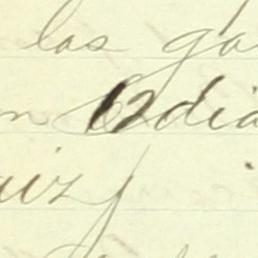 las ga
n 12 dia
aiz